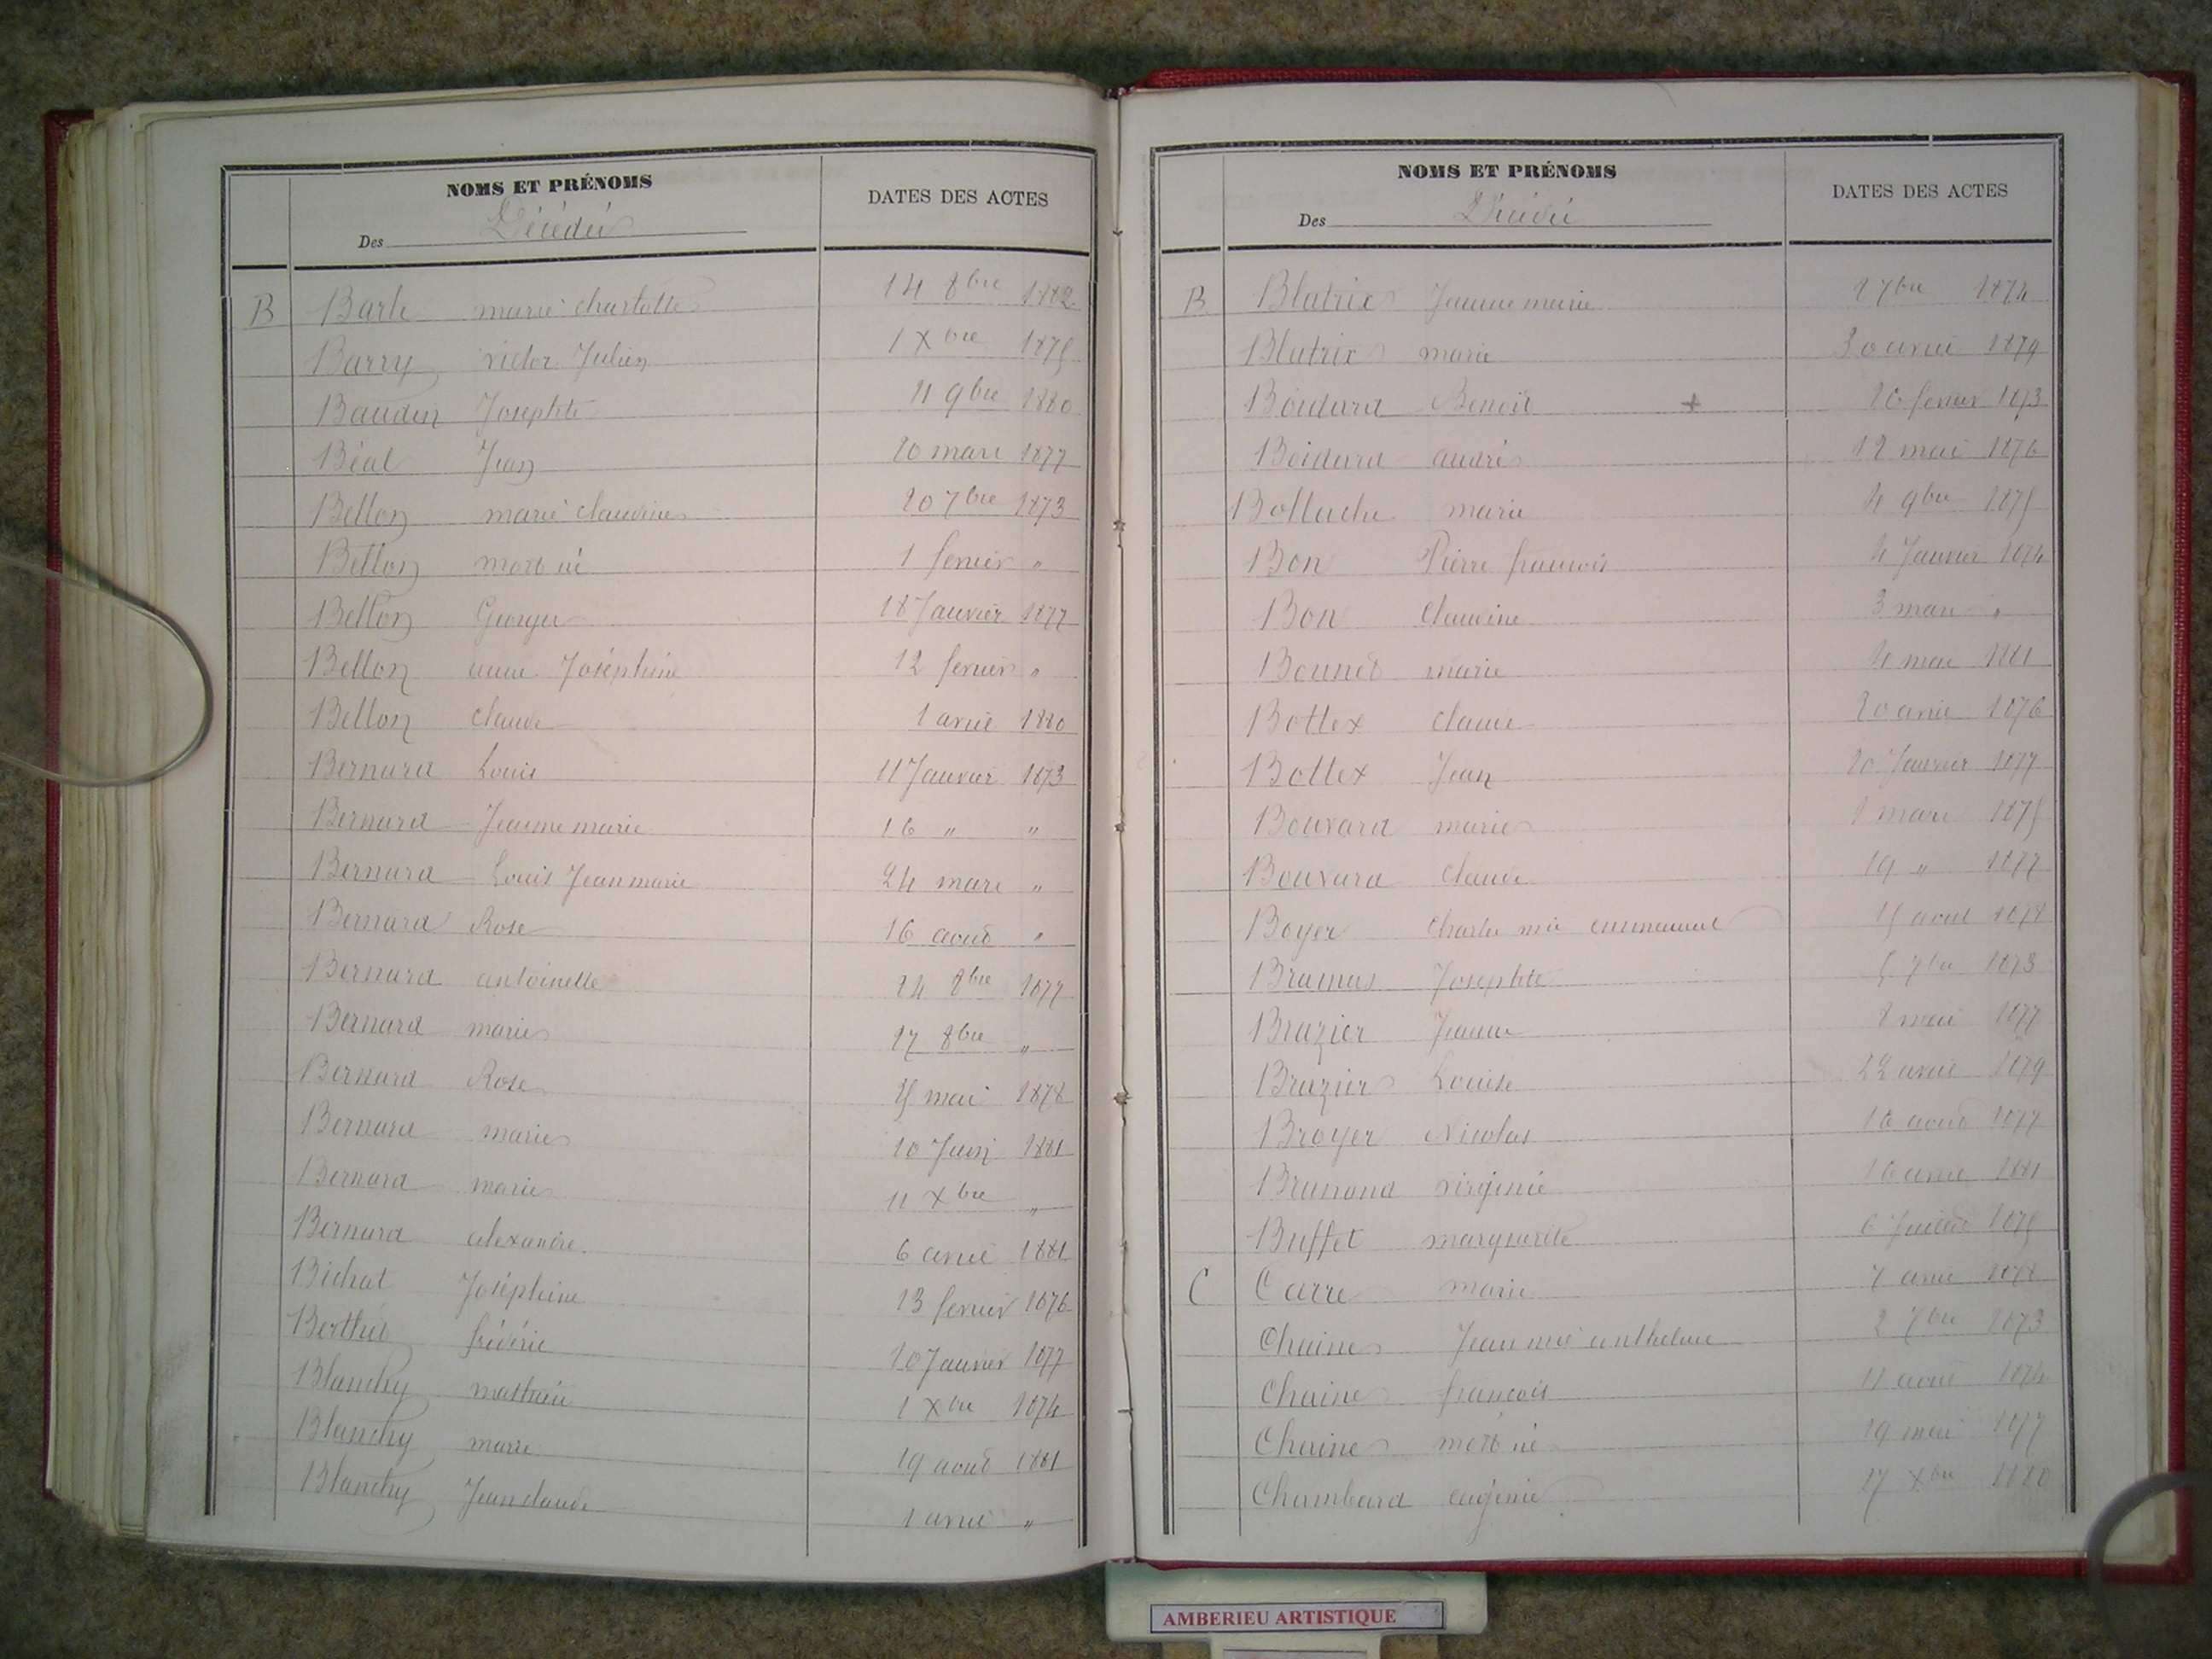 NOMS ET PRÉNOMS
Des Décédés
DATES DES ACTES
B Barle marie charlotte 14 8bre 1882
Barry victor Julien 1 Xbre 1875
Baudin Josephte 11 9bre 1880
Béal Jean 20 mars 1877
Bellon marie claudine 20 7bre 1873
Bellon mort né 1 fevrier "
Bellon George 18 Janvier 1877
Bellon anne Joséphine 12 fevrier "
Bellon claude 1 avril 1880
Bernard Louis 11 Janvier 1873
Bernard Jeanne marie 16 " "
Bernard Louis Jean marie 24 mars "
Bernard Rose 16 août "
Bernard antoinette 24 8bre 1877
Bernard marie 27 8bre "
Bernard Rose 15 mai 1878
Bernard marie 10 Juin 1881
Bernard marie 11 Xbre "
Bernard alexandre 6 avril 1881
Bichat Joséphine 13 fevrier 1876
Berthet frédéric 10 Janvier 1877
Blanchy mathieu 1 Xbre 1874
Blanchy marie 19 août 1881
Blanchy Jean claude 1 avril "
NOMS ET PRÉNOMS
Des Décédés
DATES DES ACTES
B Blatrix Jeanne marie 7bre 1874
Blatrix marie 30 avril 1879
Boidard Benoit + 26 fevrier 1873
Boidard andré 12 mai 1876
Bollache marie 4 9bre 1875
Bon Pierre francois 4 Janvier 1874
Bon Claudine 3 mars "
Bonnet marie 1881
Bottex claude 20 avril 1876
Bottex Jean 20 Janvier 1877
Bouvard marie mars 1875
Bouvard claude 19 " 1877
Boyer charles mie emmanuel 15 aout 1878
Bramas Josephte 5 7bre 1873
Brazier Jeanne mai 1877
Brazier Louise 22 avril 1879
Broyer Nicolas 16 août 1877
Brunond virginie 16 avril 1881
Buffet marguerite 6 Juillet 1875
C Carre marie 7 avril 1878
Chaine Jean mie anthelme 2 7bre 1873
Chaine francois 11 août 1874
Chaine mort né 19 mai 1877
Chambard eugénie Xbre 1880
AMBERIEU ARTISTIQUE